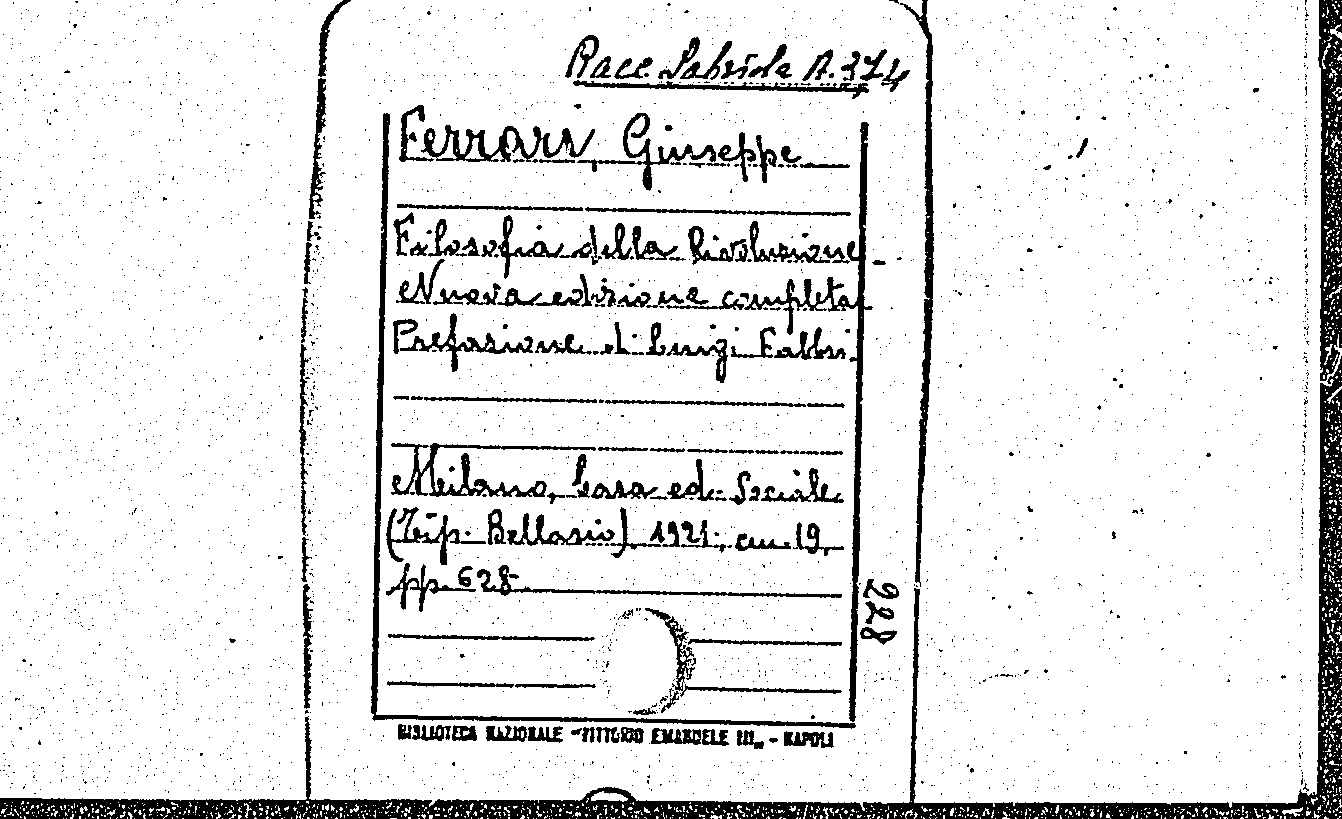 Racc. Labriola A. 374
Ferrari, Giuseppe
Filosofia della Rivoluzione -
Nuova edizione completa
Prefazione di Luigi Fabbri.
Milano, Casa ed. Sociale
(Tip. Bellasio) 1921; cm. 19,
pp. 628
228
BIBLIOTECA NAZIONALE "VITTORIO EMANUELE III" - NAPOLI